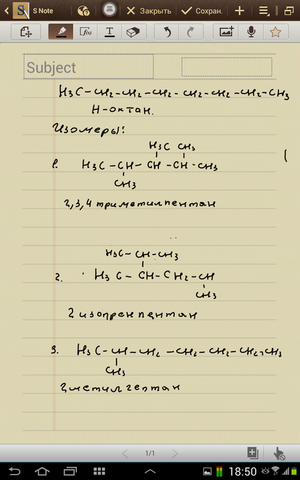 S Note
Закрыть
Сохран.
Subject
H3C-CH2-CH2-CH2-CH2-CH2-CH2-CH3
Н-октан.
Изомеры:
H3C CH3
1. H3C-CH-CH-CH-CH3
CH3
2,3,4 триметилпентан
H3C-CH-CH3
2. H3C-CH-CH2-CH
CH3
2 изопренпентан
3. H3C-CH-CH2-CH2-CH2-CH2-CH3
CH3
2 метилгептан
1/1
18:50